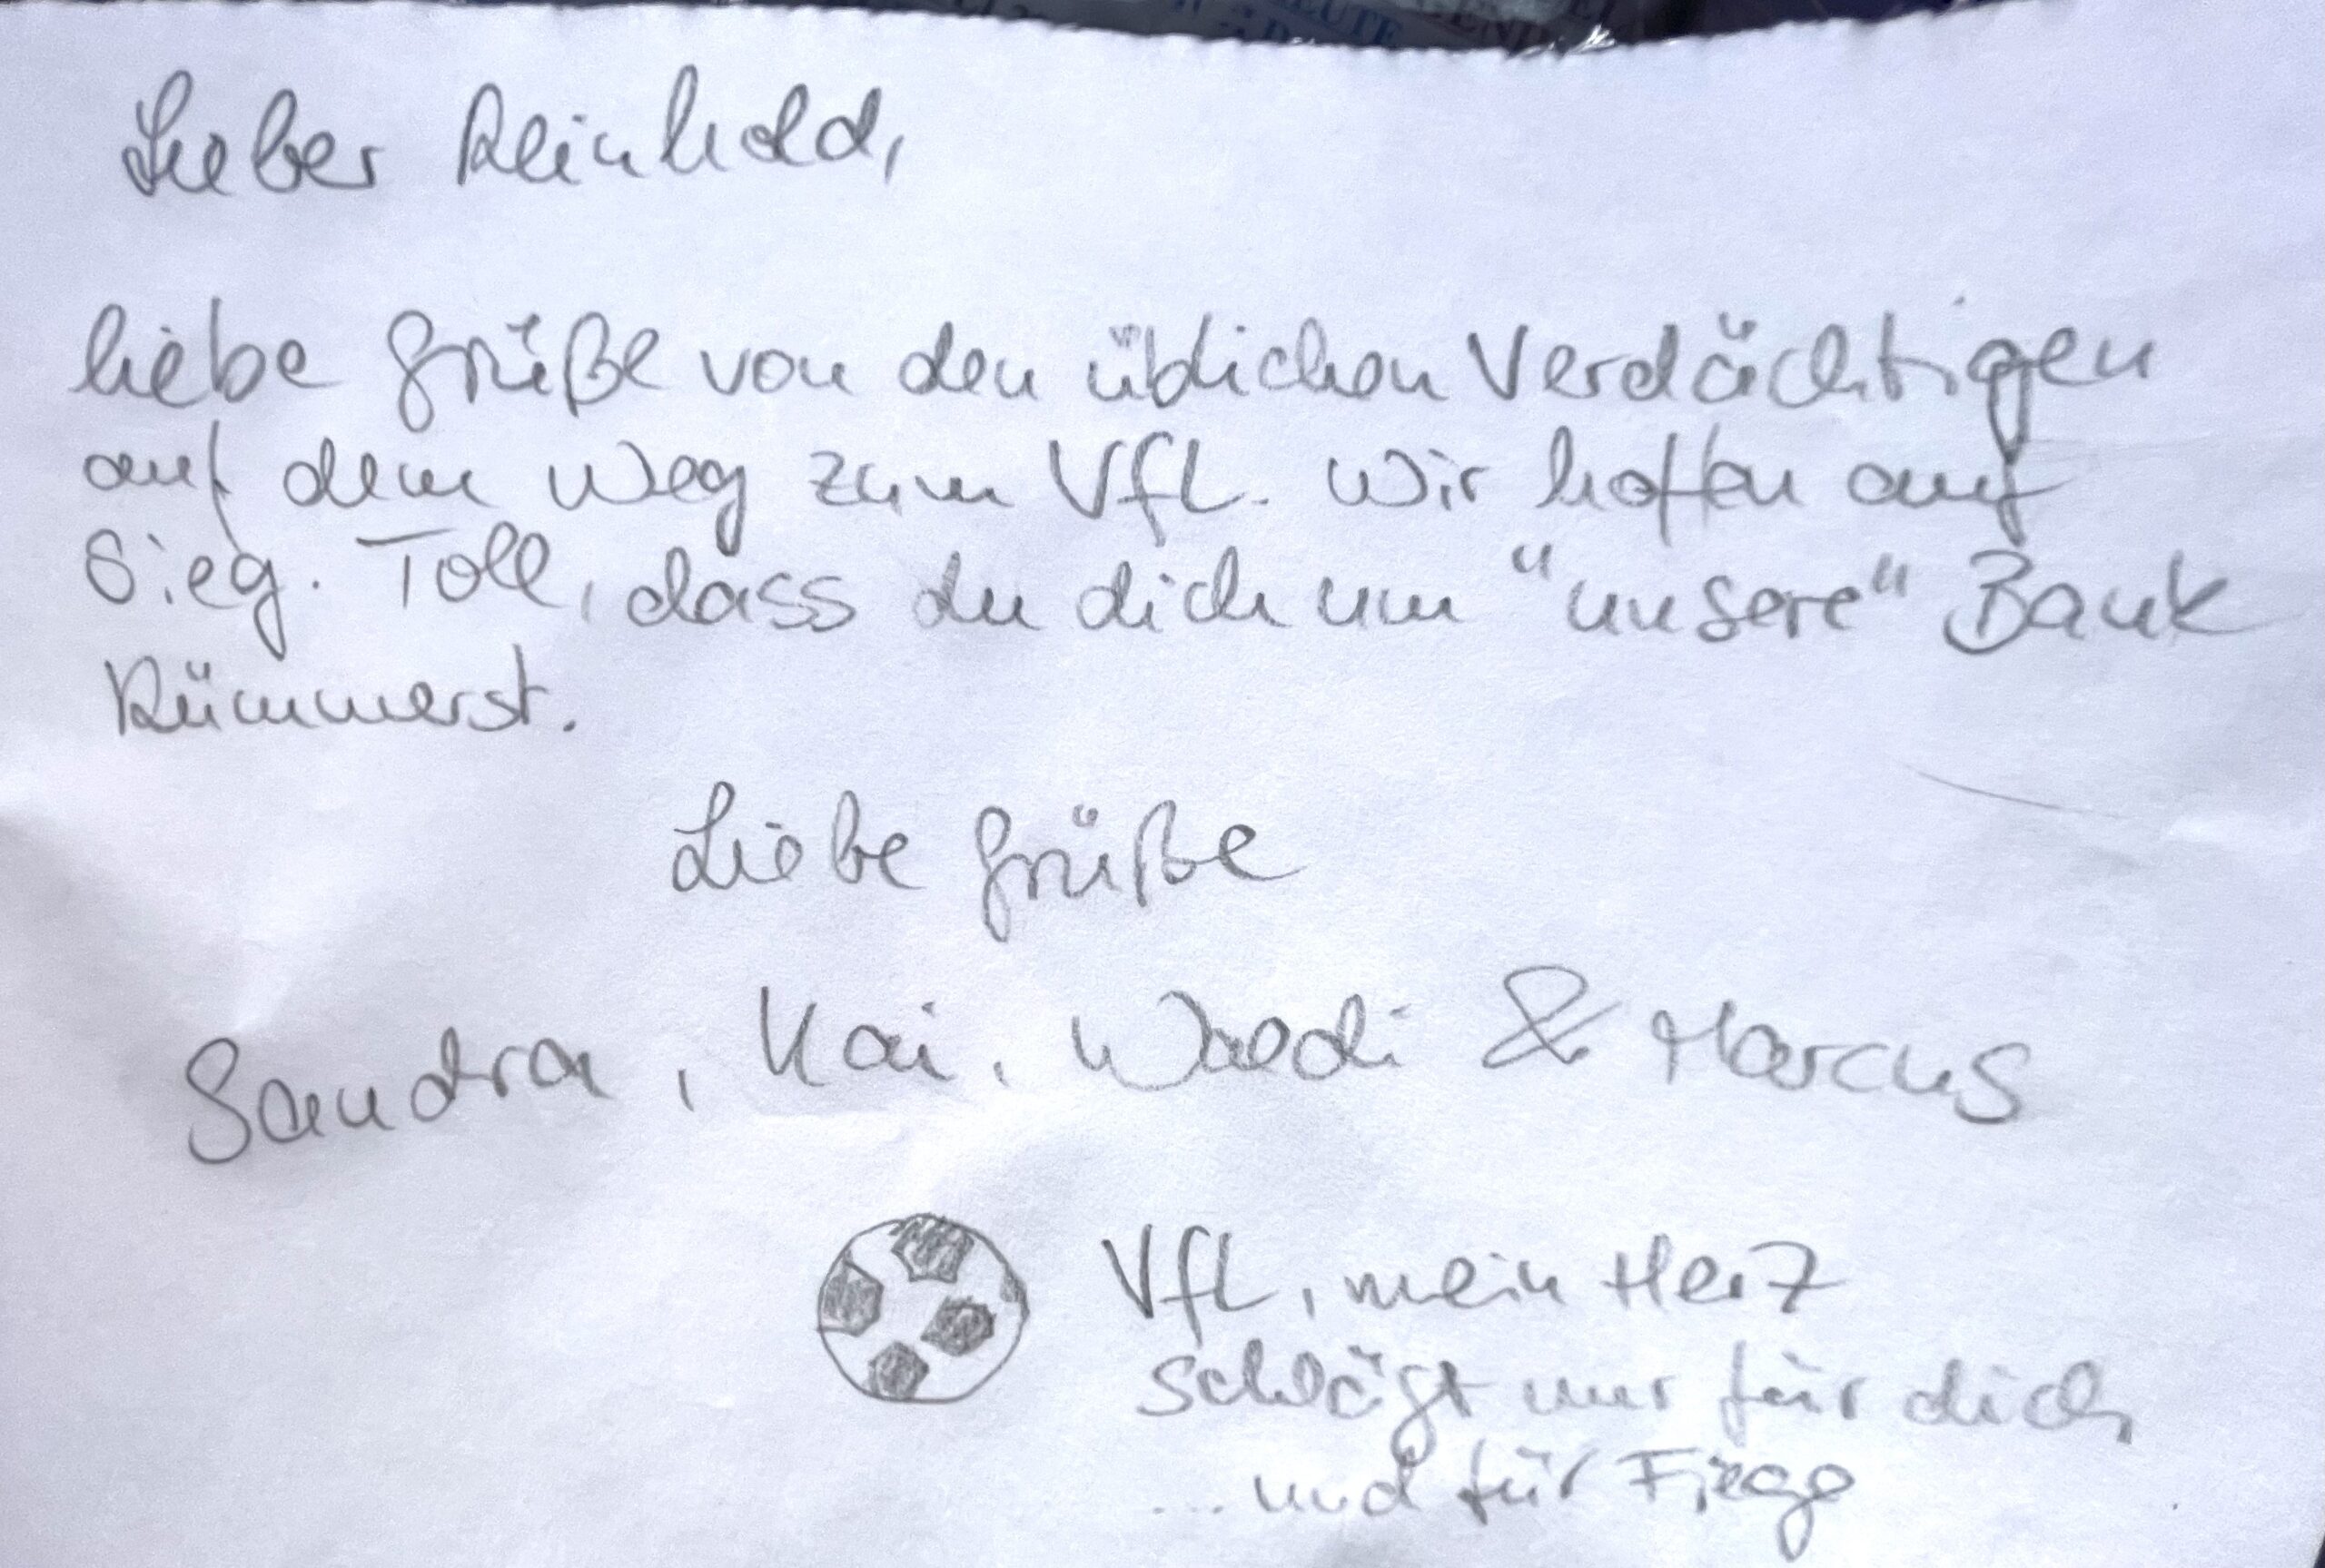 Lieber Reinhold,
liebe Grüße von den üblichen Verdächtigen
auf dem Weg zum VfL. Wir hoffen auf
Sieg. Toll, dass du dich um "unsere" Bank
kümmerst.
Liebe Grüße
Sandra, Kai, Waldi & Marcus
VfL, mein Herz
schlägt nur für dich,
... und für Fiege